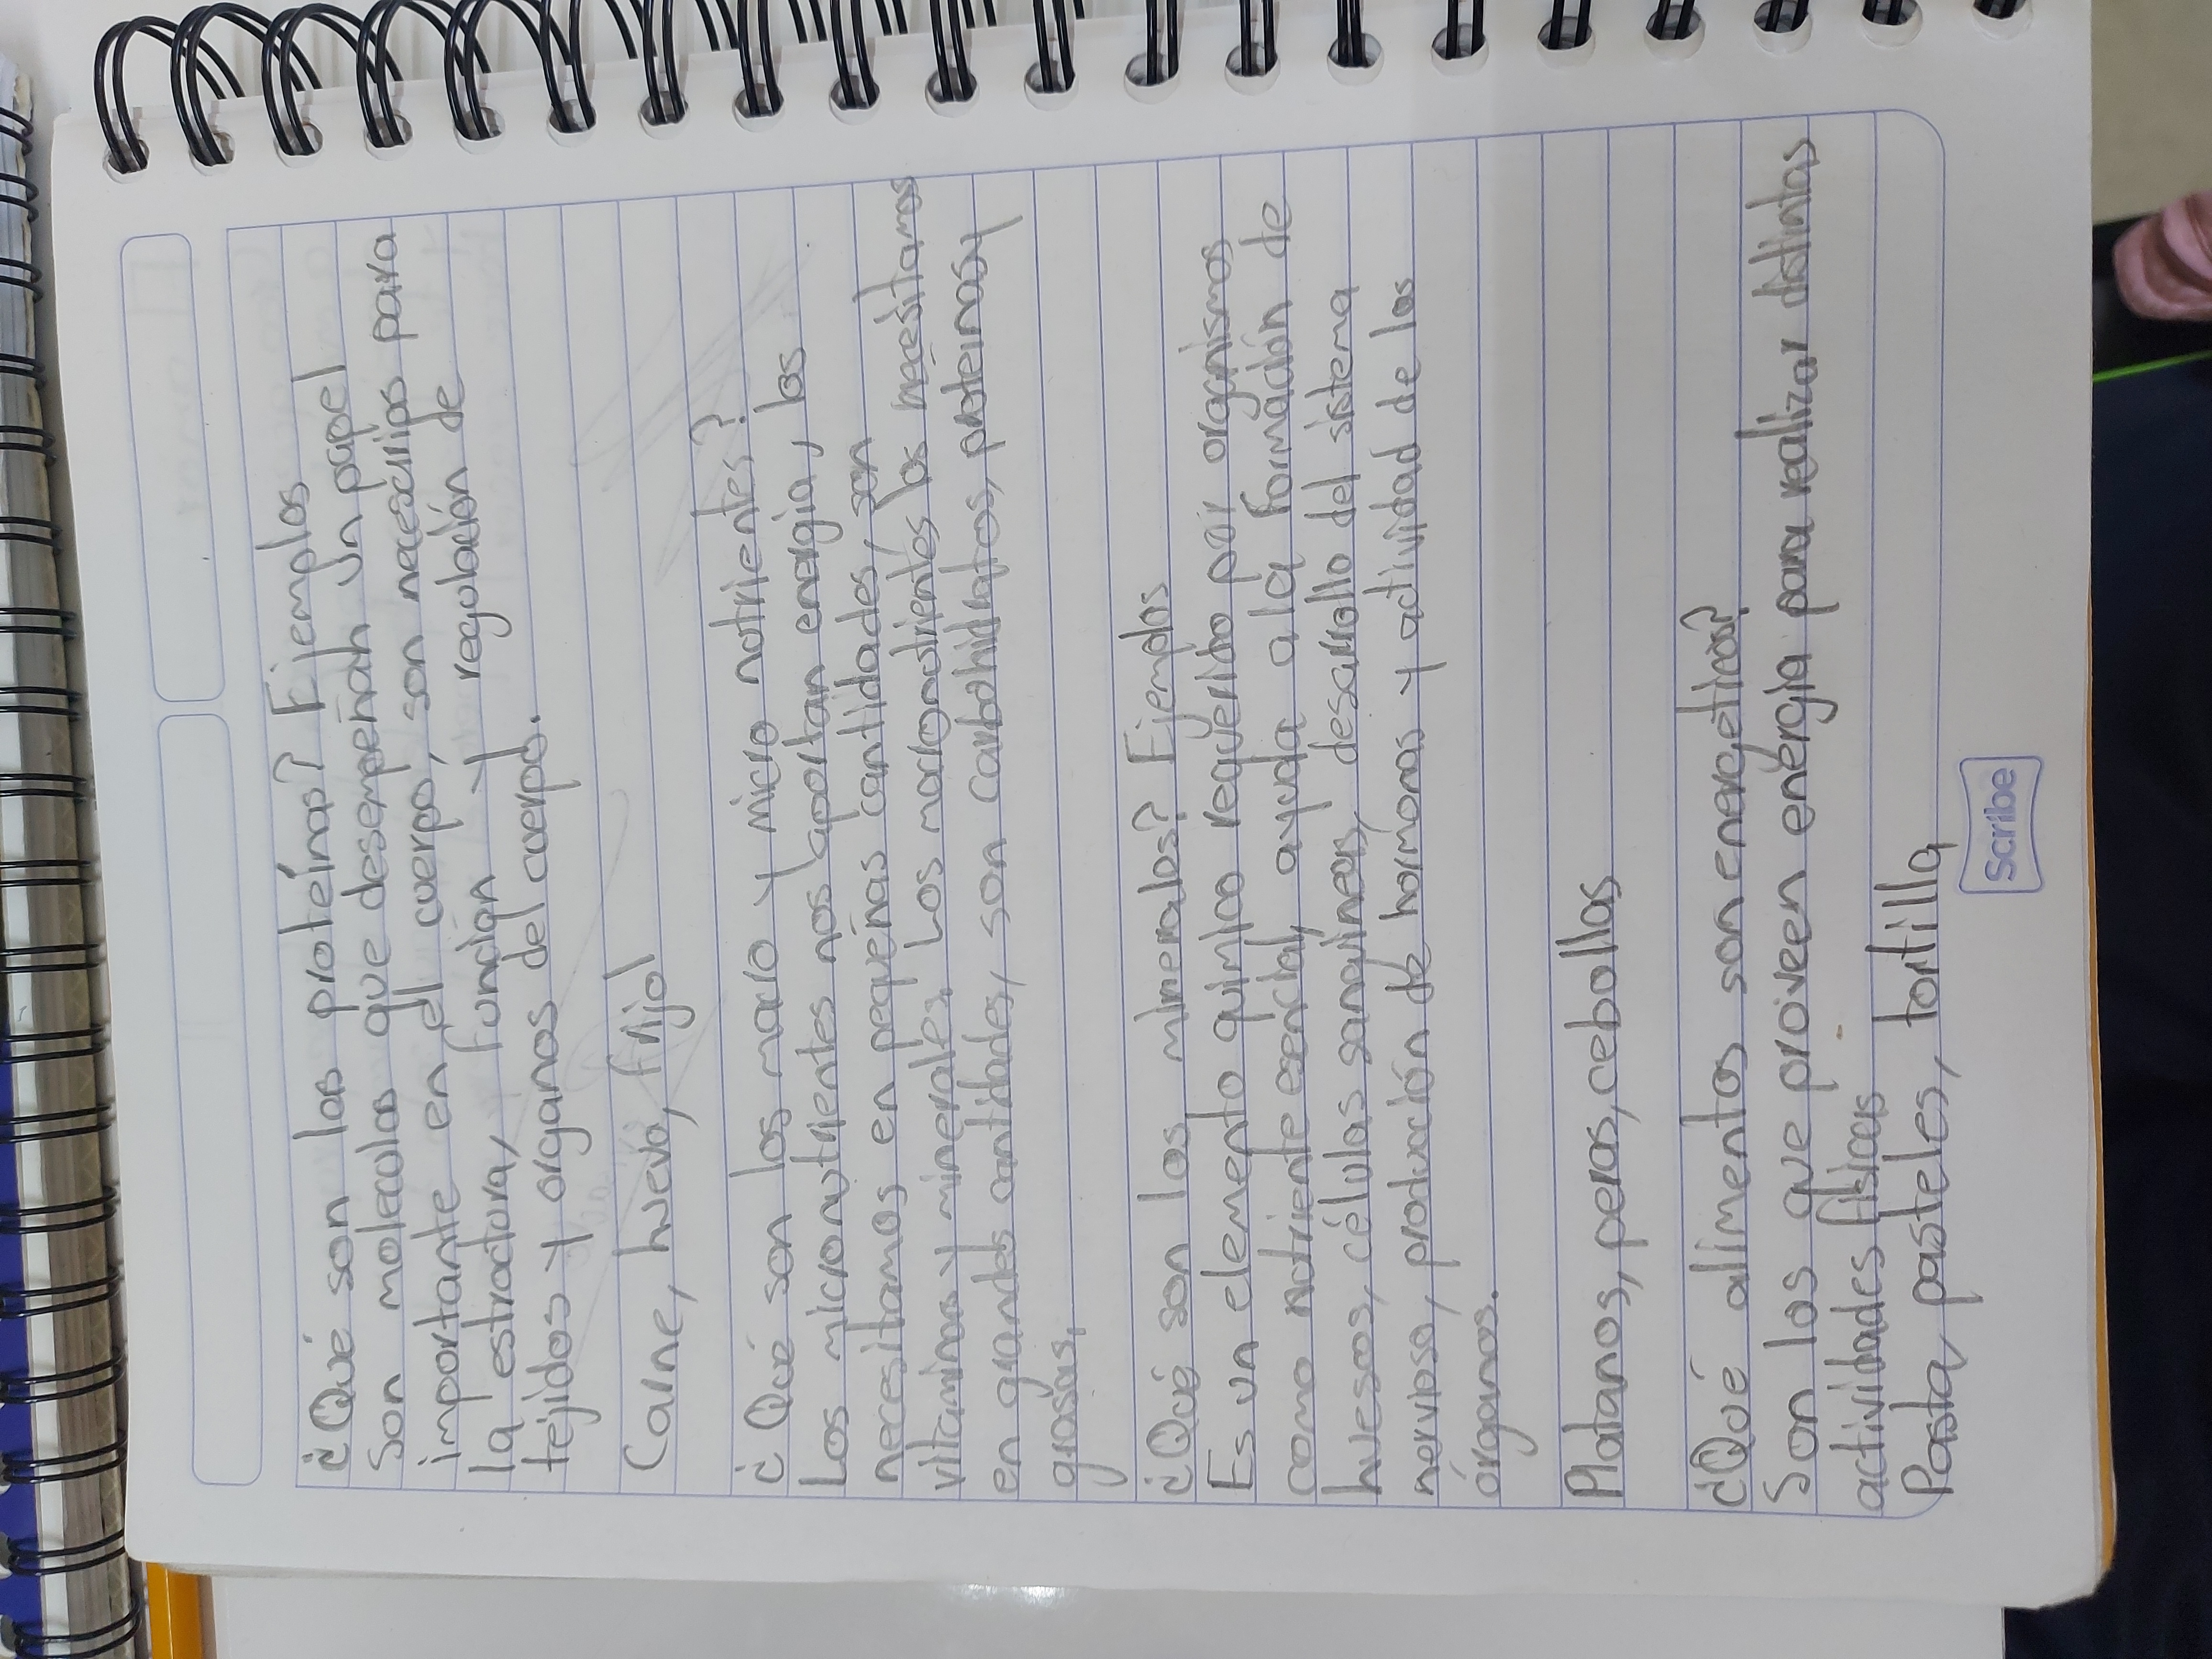 ¿Qué son las proteínas? Ejemplos
Son moleculas que desempeñan un papel
importante en el cuerpo, son necesarios para
la estructura, función y regulación de
tejidos y organos del cuerpo.
Carne, huevo, frijol
¿Qué son los macro y micro nutrientes?
Los micronutrientes nos aportan energia, los
necesitamos en pequeñas cantidades, son
vitaminas y minerales. Los macronutrientes los necesitamos
en grandes cantidades, son carbohidratos, proteinas y
grasas.
¿Qué son los minerales? Ejemplos
Es un elemento quimico requerido por organismos
como nutriente esencial, ayuda a la formación de
huesos, células sanguineas, desarrollo del sistema
nervioso, producción de hormonas y actividad de los
órganos.
Platanos, peras, cebollas
¿Qué alimentos son energéticos?
Son los que proveen energia para realizar distintas
actividades físicas
Pasta, pasteles, tortilla
Scribe